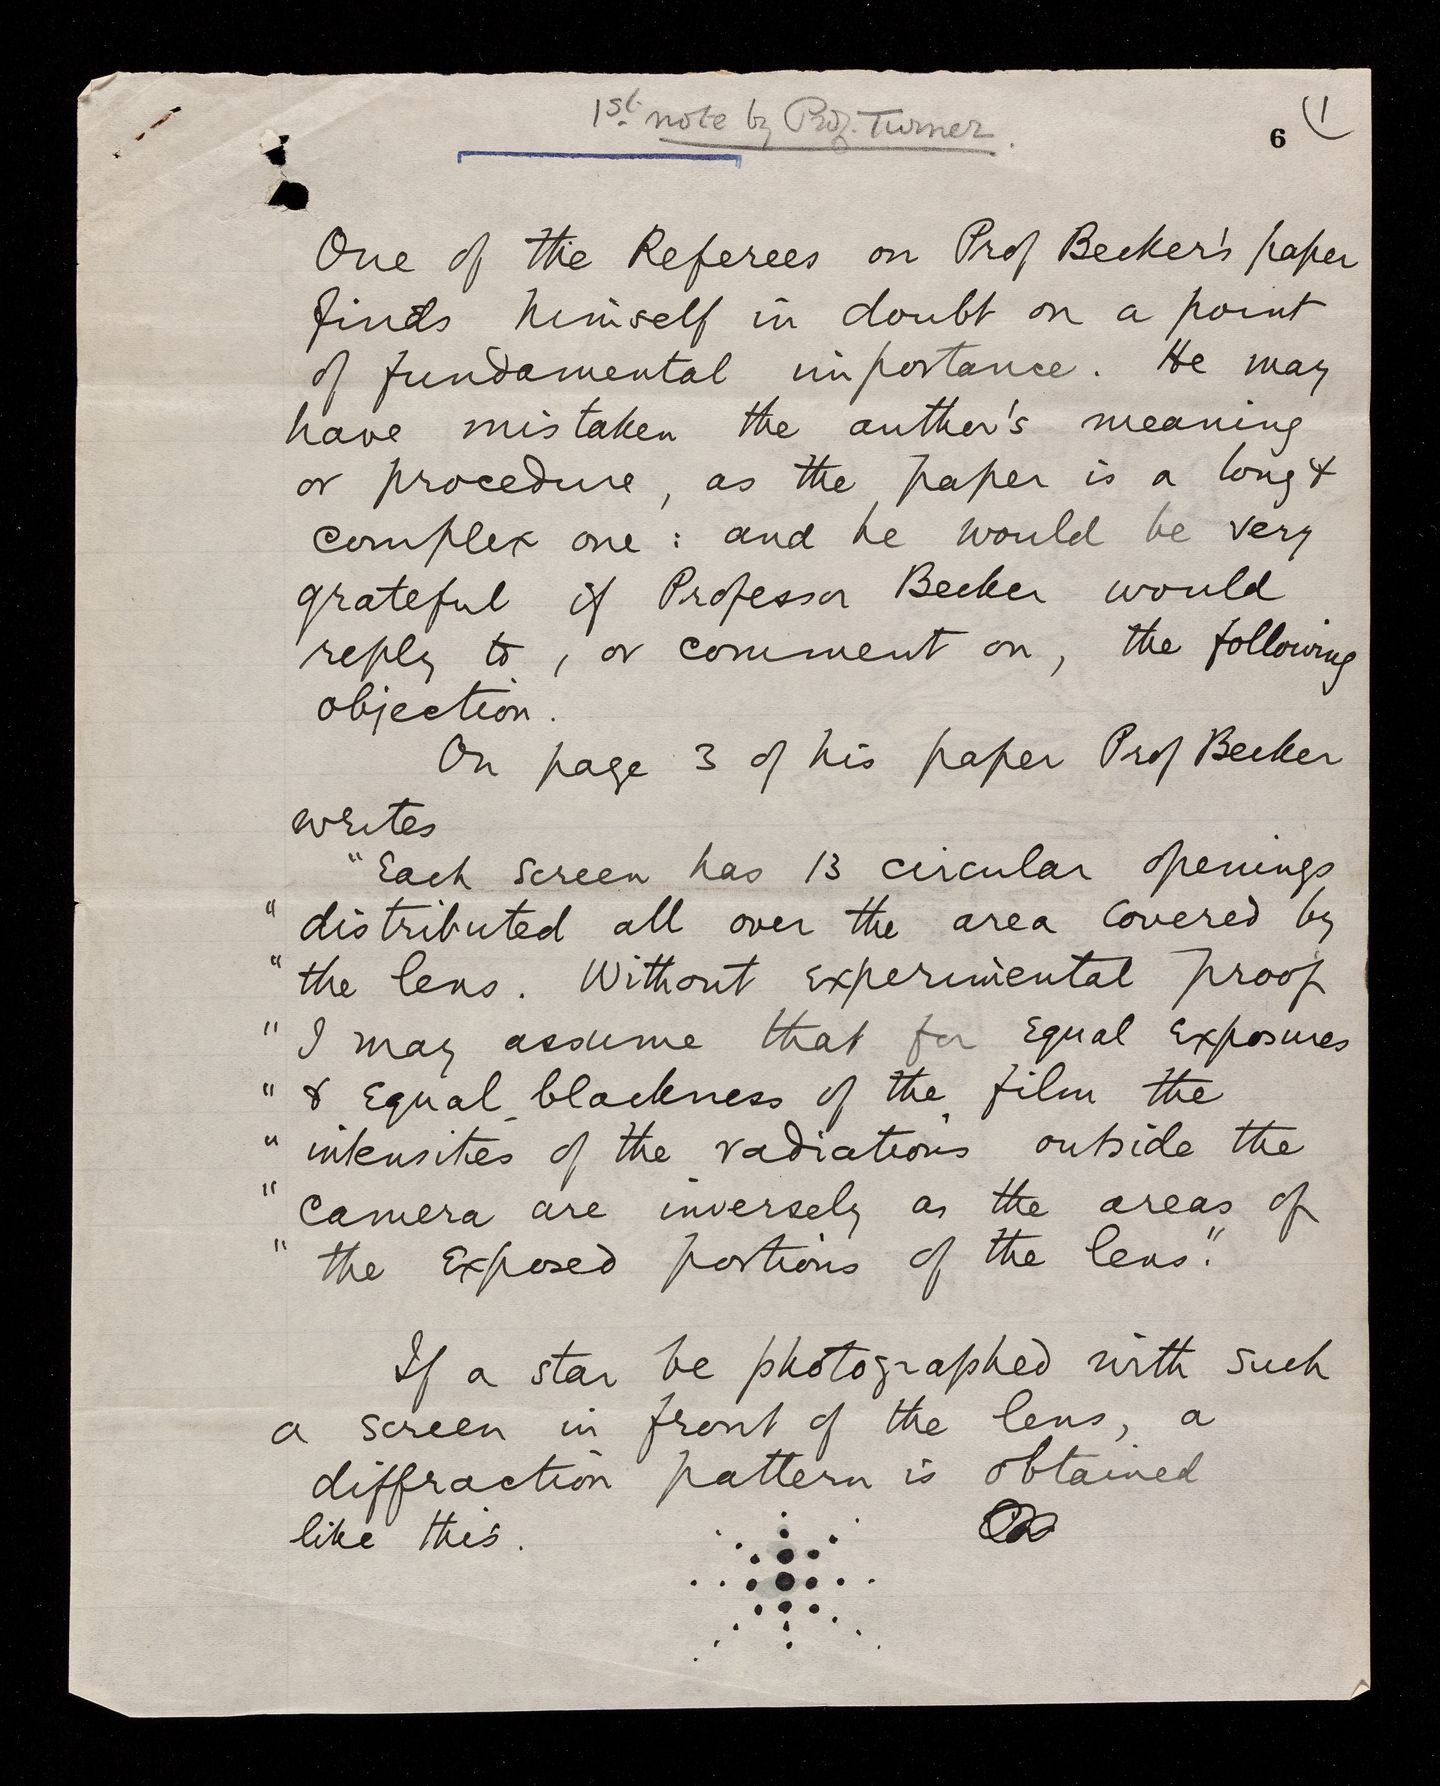 1st. note by Prof. Turner.
6
1
One of the Referees on Prof Becker's paper
finds himself in doubt on a point
of fundamental importance. He may
have mistaken the author's meaning
or procedure, as the paper is a long &
complex one: and he would be very
grateful if Professor Becker would
reply to, or comment on, the following
objection.
On page 3 of his paper Prof Becker
writes
"Each screen has 13 circular openings
" distributed all over the area covered by
" the lens. Without experimental proof
" I may assume that for equal exposures
" & equal blackness of the film the
" intensities of the radiations outside the
" camera are inversely as the areas of
" the exposed portions of the lens."
If a star be photographed with such
a screen in front of the lens, a
diffraction pattern is obtained
like this.